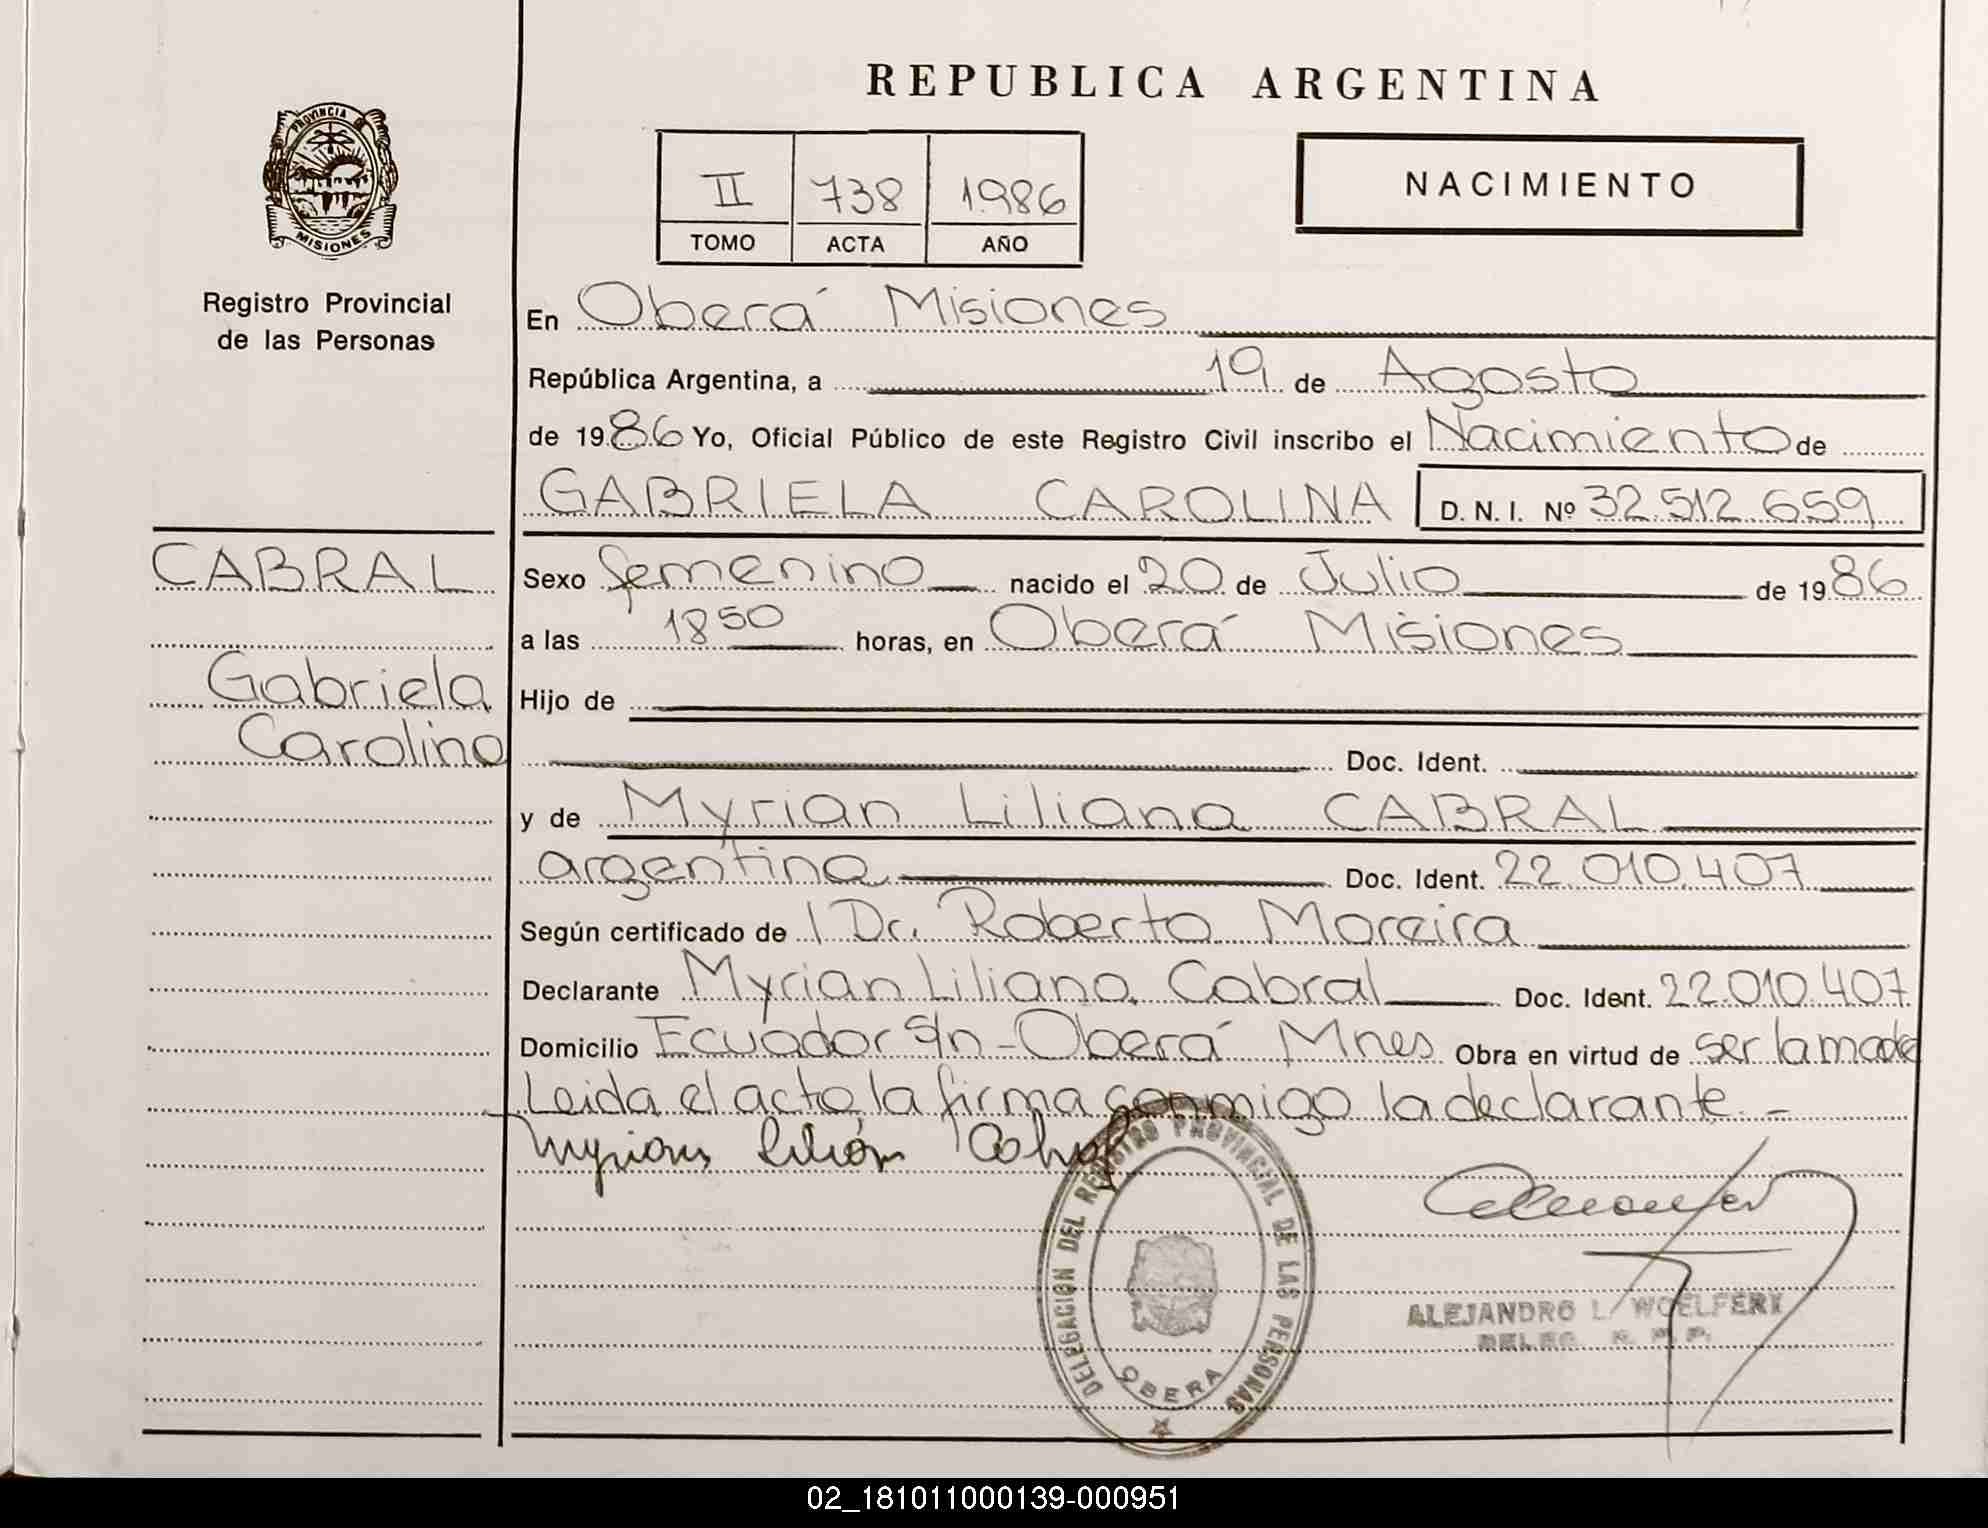 REPUBLICA ARGENTINA
PROVINCIA DE
MISIONES
Registro Provincial
de las Personas
II 738 1986
TOMO ACTA AÑO
NACIMIENTO
En Oberá Misiones
República Argentina, a 19 de Agosto
de 1986 Yo, Oficial Público de este Registro Civil inscribo el Nacimiento de
GABRIELA CAROLINA D. N. I. Nº 32.512.659
CABRAL
Gabriela
Carolina
Sexo femenino nacido el 20 de Julio de 1986
a las 18 50 horas, en Oberá Misiones
Hijo de
Doc. Ident.
y de Myrian Liliana CABRAL
argentina Doc. Ident. 22.010.407
Según certificado de / Dr. Roberto Moreira
Declarante Myrian Liliana Cabral Doc. Ident. 22.010.407
Domicilio Ecuador s/n - Oberá Mnes Obra en virtud de ser la madre
Leida el acta la firma conmigo la declarante. -
Myrian Lilián Cabral
DELEGACION DEL REGISTRO PROVINCIAL DE LAS PERSONAS
OBERA
ALEJANDRO L. WOELFERT
DELEG. R. P. P.
02_181011000139-000951